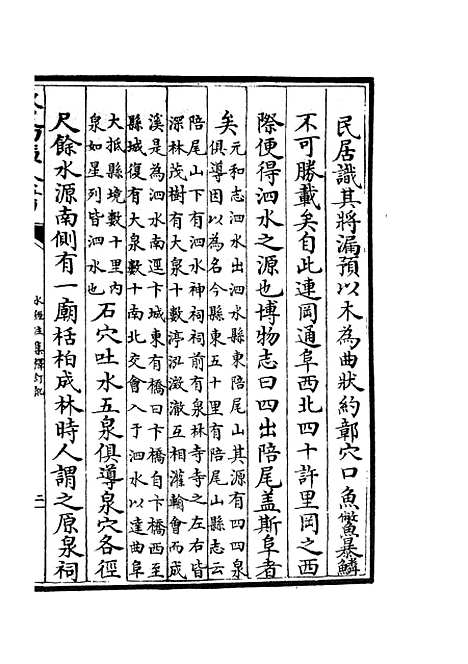 民居識其將漏預以木為曲狀約鄣穴口魚鱉暴鱗
不可勝載矣自此連岡通阜西北四十許里岡之西
際便得泗水之源也博物志曰四出陪尾盖斯阜者
矣元和志泗水出泗水縣東陪尾山其源有四四泉
俱導因以為名今縣東五十里有陪尾山縣志云
陪尾山下有泗水神祠祠前有泉林寺寺之左右皆
深林茂樹有大泉十數渟泓澂澈互相灌輸會而成
溪是為泗水南逕卞城東有橋曰卞橋自卞橋西至
縣城復有大泉數十南北交會入于泗水以達曲阜
大抵縣境數十里内
泉如星列皆泗水也
石穴吐水五泉俱導泉穴各徑
尺餘水源南側有一廟栝柏成林時人謂之原泉祠
水經注集釋訂訛